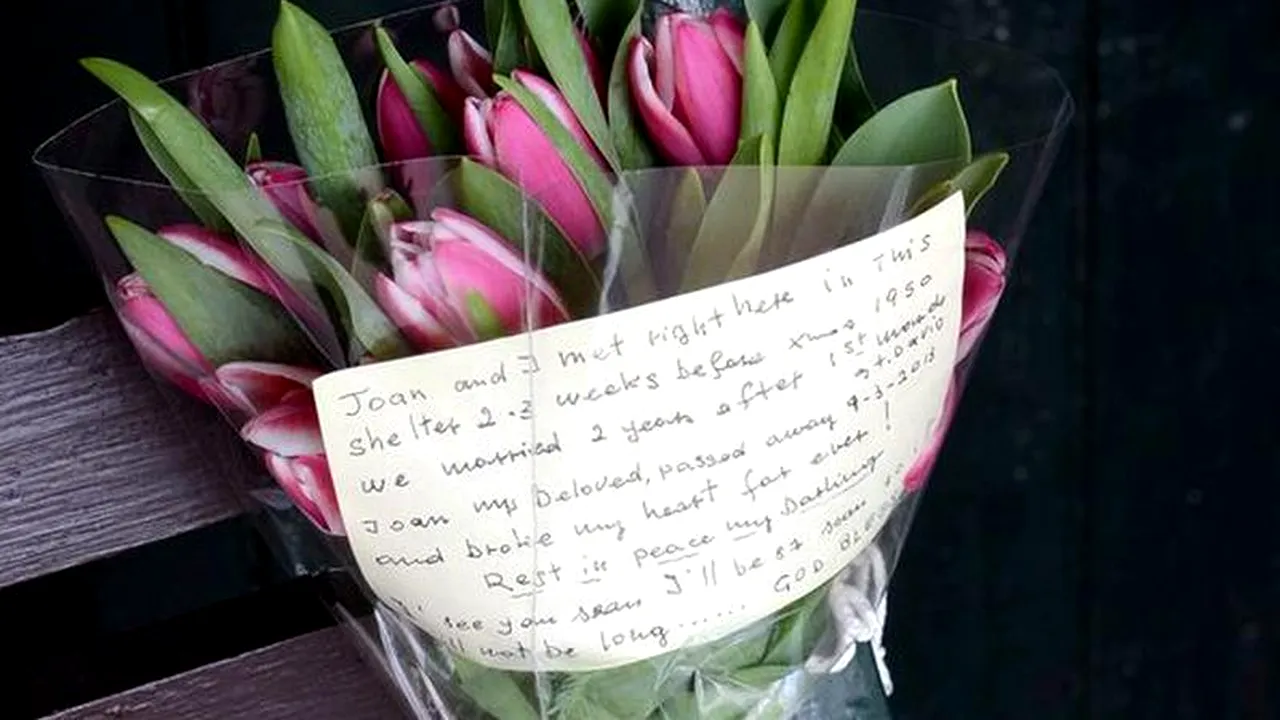 Joan and I met right here in This
shelter 2-3 weeks before xmas 1950
we married 2 years after 1st mond
Joan my beloved, passed away 9-3-2013
and broke my heart for ever !
Rest in peace my Darling
see you soan I'll be 87 soan
not be long...... GOD